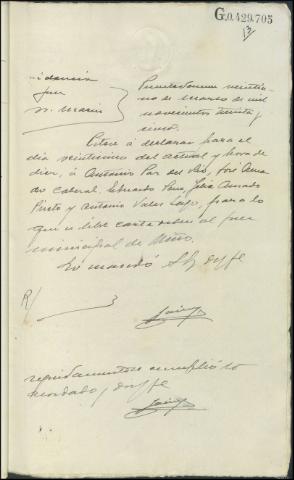 G.0.429.705
13
Providencia
Juez
Sr. Macías
Puentedeume veintiuno
de marzo de mil
novecientos treinta y
cinco.
Cítese a declarar para el
día veintinueve del actual y hora de
diez, a Antonio Paz del Río, José Ama
do Cabezal, Eduardo Pena, Julio Amado
Pinto y Antonio Vales Lago, para lo
que se libre carta orden al Juez
municipal de Miño.
Lo mandó S.Sª doy fe
R/
seguidamente se cumplió lo
acordado, doy fe